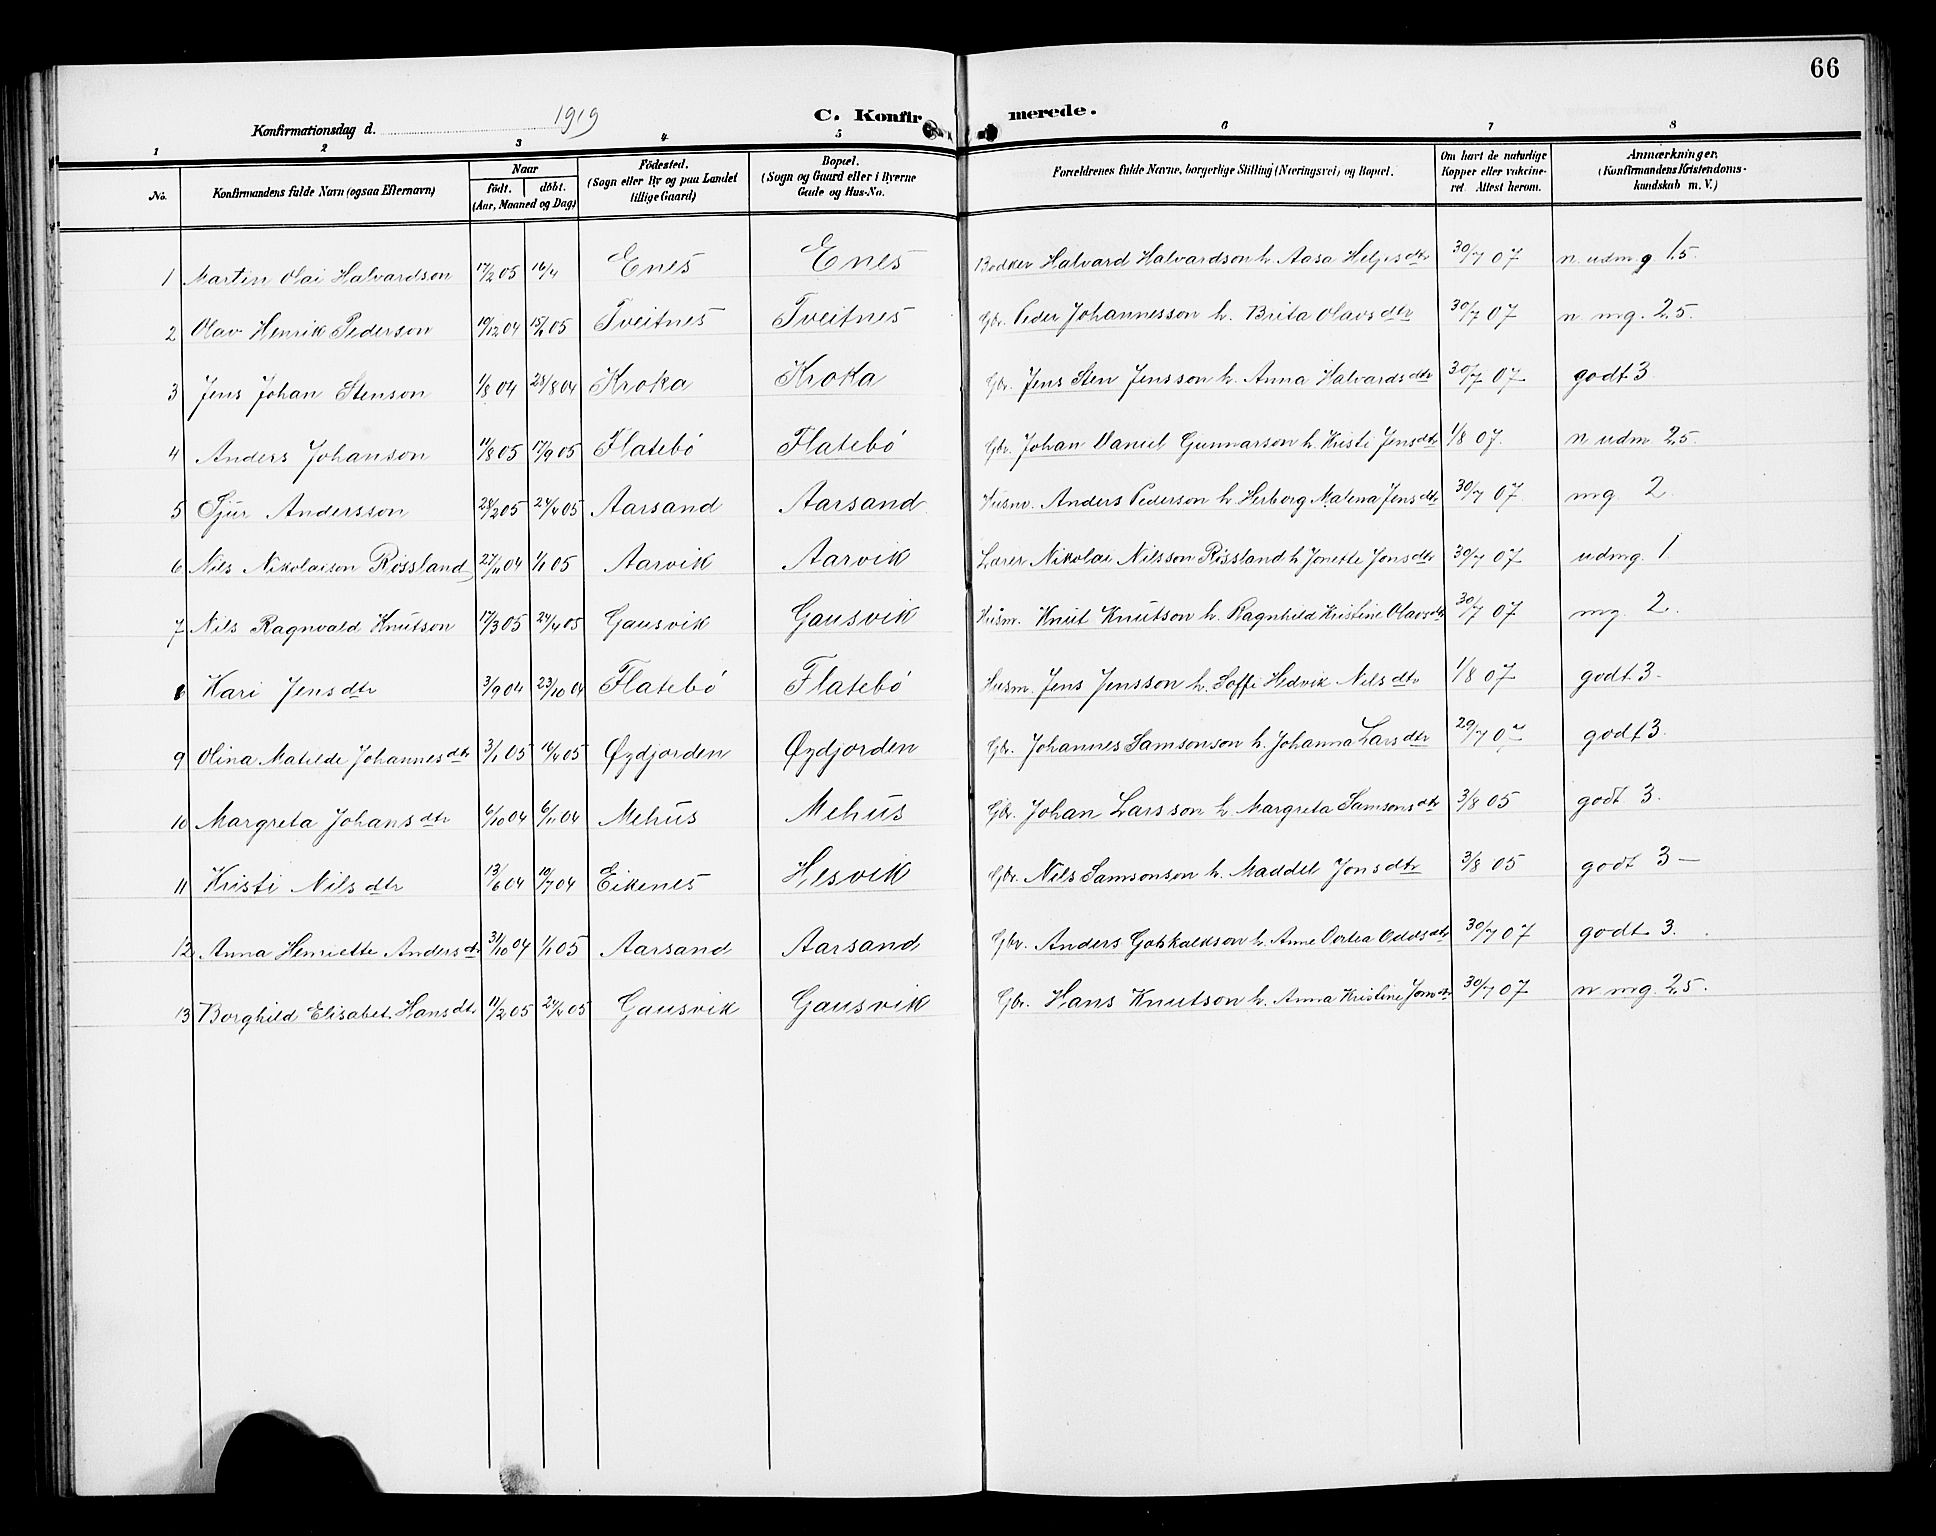 66
Konfirmationsdag d. 1919 C. Konfirmerede.
1 2 3 4 5 6 7 8
No. Konfirmandens fulde Navn (ogsaa Efternavn) Naar født. døbt. (Aar, Maaned og Dag) Födested. (Sogn eller By og paa Landet tillige Gaard) Bopæl. (Sogn og Gaard eller i Byerne Gade og Hus-No. Forældrenes fulde Navne, borgerlige Stilling (Næringsvei) og Bopæl. Om havt de naturlige Kopper eller vakcineret. Attest herom. Anmærkninger. (Konfirmandens Kristendomskundskab m. V.)
1 Martin Olai Halvardson 17/2 05 16/4 Enes Enes Bødker Halvard Halvardson h. Aasa Heljesdtr 30/7 07 n udmg 1.5.
2 Olav Henrik Pederson 19/12 04 05 Tveitnes Tveitnes Gbr. Peder Johannesson h. Brita Olavsdtr 30/7 07 n mg. 2.5.
3 Jens Johan Stenson 1/8 04 28/8 04 Kroka Kroka Gbr. Jens Sten Jensson h. Anna Halvardsdtr 30/7 07 godt 3
4 Anders Johanson 11/8 05 17/9 05 Flatebø Flatebø Gbr. Johan Daniel Gunnarson h. Kristi Jensdtr 1/8 07. n udm 2.5.
5 Sjur Andersson 28/2 05 24/4 05 Aarsand Aarsand Husm. Anders Pederson h. Herborg Malena Jensdtr 30/7 07 mg 2.
6 Nils Nikolaison Røssland 27/11 04 1/1 05 Aarvik Aarvik Lærer Nikolai Nilsson Røssland h Jonette Jonsdtr 30/7 07 udmg. 1.
7 Nils Ragnvald Knutson 17/3 05 24/4 05 Gausvik Gausvik Husm. Knut Knutson h. Ragnhild Kristine Olavsdtr 30/7 07 mg. 2.
8 Kari Jensdtr 3/9 04 23/10 04 Flatebø Flatebø Husm. Jens Jensson h. Soffi Hedvik Nilsdtr 1/8 07 godt 3.
9 Olina Matilde Johannesdtr 3/1 05 16/4 05 Øydjorden Øydjorden Gbr. Johannes Samsonson h. Johanna Larsdtr 29/7 07 godt 3.
10 Margreta Johansdtr 6/10 04 6/11 04 Mehus Mehus Gbr. Johan Larsson h. Margreta Samsonsdtr 3/8 05 godt 3.
11 Kristi Nilsdtr 13/6 04 10/7 04 Eikenes Hesvik Gbr. Nils Samsonson h. Maddel Jonsdtr 3/8 05 godt 3 –
12 Anna Henriette Andersdtr 31/10 04 1/1 05 Aarsand Aarsand Gbr. Anders Gotskalkson h. Anne Dortea Oddsdtr 30/7 07 godt 3.
13 Borghild Elisabet Hansdtr 11/2 05 24/4 05 Gausvik Gausvik Gbr. Hans Knutson h. Anna Kristine Jonsdtr 30/7 07 n mg. 2.5.